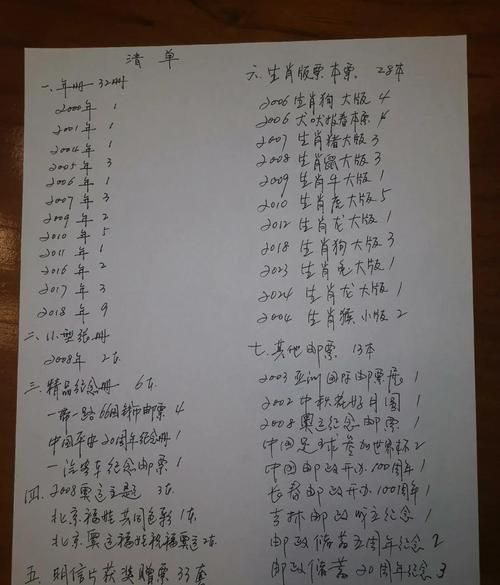 清单
一. 年册 32册
2000年 1
2001年 1
2004年 1
2005年 3
2006年 1
2007年 3
2009年 2
2010年 5
2011年 1
2016年 2
2017年 3
2018年 9
二. 小型张册
2008年 2本
三. 精品纪念册 6本
一带一路66国钱币邮票 4
中国平安20周年纪念册 1
一汽轿车纪念邮票 1
四. 2008奥运主题 3本
北京福娃共同 1本
北京奥运福娃祝福奥运 2本
五. 明信片获奖赠票 33套
六. 生肖版票本票 28本
2006 生肖狗大版 4
2006 犬吠报春本票 4
2007 生肖猪大版 3
2008 生肖鼠大版 3
2009 生肖牛大版 1
2010 生肖虎大版 5
2012 生肖龙大版 1
2018 生肖狗大版 3
2023 生肖兔大版 1
2024 生肖龙大版 1
2004 生肖猴小版 2
七. 其他邮票 13本
2003 亚洲国际邮票展 1
2002 中秋花好月圆 1
2008 奥运纪念邮票 1
中国足球参加世界杯 2
中国邮政开办100周年 1
长春邮政开办100周年 1
吉林邮政成立纪念 1
邮政储蓄五周年纪念 2
邮政储蓄20周年纪念 3